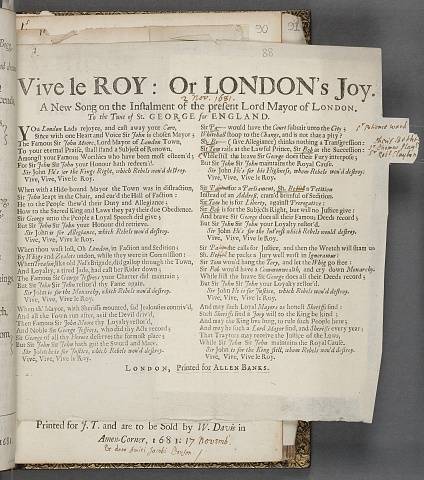 90
91
88
Vive le ROY: Or LONDON's Joy.
2 Nov. 1681.
A New Song on the Instalment of the present Lord Mayor of LONDON,
To the Tune of St. GEORGE for ENGLAND.
YOu London Lads rejoyce, and cast away your Care,
Since with one Heart and Voice Sir John is chosen Mayor;
The Famous Sir John Moore, Lord Mayor of London Town,
To your eternal Praise, shall stand a Subject of Renown,
Amongst your Famous Worthies who have been most esteem'd;
For Sir John Sir John your Honour hath redeem'd.
Sir John He's for the Kings Right, which Rebels wou'd destroy.
Vive, Vive, Vive le Roy.
When with a Hide-bound Mayor the Town was in distraction,
Sir John leapt in the Chair, and cou'd the Hall of Faction:
He to the People shew'd their Duty and Allegiance;
How to the Sacred King and Laws they pay their due Obedience.
Sir George unto the People a Loyal Speech did give;
But Sir John Sir John your Honour did retrieve.
Sir John is for Allegiance, which Rebels wou'd destroy.
Vive, Vive, Vive le Roy.
When thou wast lost, Oh London, in Faction and Sedition;
By Whigs and Zealots undone, while they were in Commission:
When Treason like old Nol's Brigade, did gallop through the Town,
And Loyalty, a tired Jade, had cast her Rider down;
The Famous Sir George Jefferys your Charter did maintain;
But Sir John Sir John restor'd thy Fame again.
Sir John is for the Monarchy, which Rebels wou'd destroy.
Vive, Vive, Vive le Roy.
When th' Mayor, with Sheriffs mounted, sad Jealousies contriv'd,
And all the Town run after, as if the Devil driv'd,
Then Famous Sir John Moore thy Loyalty restor'd,
And Noble Sir George Jefferys, who did thy Acts record;
Sir George of all thy Heroes deserves the foremost place;
But Sir John Sir John hath got the Sword and Mace.
Sir John he is for Justice, which Rebels wou'd destroy.
Vive, Vive, Vive le Roy.
would have the Court submit unto the City;
Whitehall stoop to the Change, and is not that a pity?
(save Allegiance) thinks nothing a Transgression:
rails at the Lawful Prince, Sir Bob at the Succession:
Whilest still the brave Sir George does their Fury interpose;
But Sir John Sir John maintains the Royal Cause.
Sir John He's for his Highness, whom Rebels wou'd destroy.
Vive, Vive, Vive le Roy.
Sir Patience a Parliament, Sir Robert a Petition
Instead of an Address, cram'd brimful of Sedition.
Sir Tom he is for Liberty, against Prerogative:
Sir Bob is for the Subjects Right, but will no Justice give;
And brave Sir George does all their Famous Deeds record;
But Sir John Sir John your Loyalty restor'd.
Sir John He is for Justice, which Rebels wou'd destroy.
Vive, Vive, Vive le Roy.
Sir Patience calls for Justice, and then the Wretch will sham us
Sir Robert he packs a Jury well worst in Ignoramus:
Sir Tom would hang the Tory, and let the Whig go free:
Sir Bob wou'd have a Commonwealth, and cry down Monarchy:
While still the brave Sir George does all their Deeds record;
But Sir John Sir John your Loyalty restor'd.
Sir John He is for Justice, which Rebels wou'd destroy.
Vive, Vive, Vive le Roy.
And may such Loyal Mayors as honest Sheriffs find:
Such Sheriffs find a Jury will to the King be kind;
And may the King live long, to rule such People here;
And may he such a Lord Mayor find, and Sheriffs every year;
That Traytors may receive the Justice of the Laws,
While Sir John Sir John maintains the Royal Cause.
Sir John is for the King still, whom Rebels wou'd destroy.
Vive, Vive, Vive le Roy.
LONDON, Printed for ALLEN BANKS.
Printed for J. T. and are to be Sold by W. Davis in
Amen-Corner, 1681: 17 Novemb.